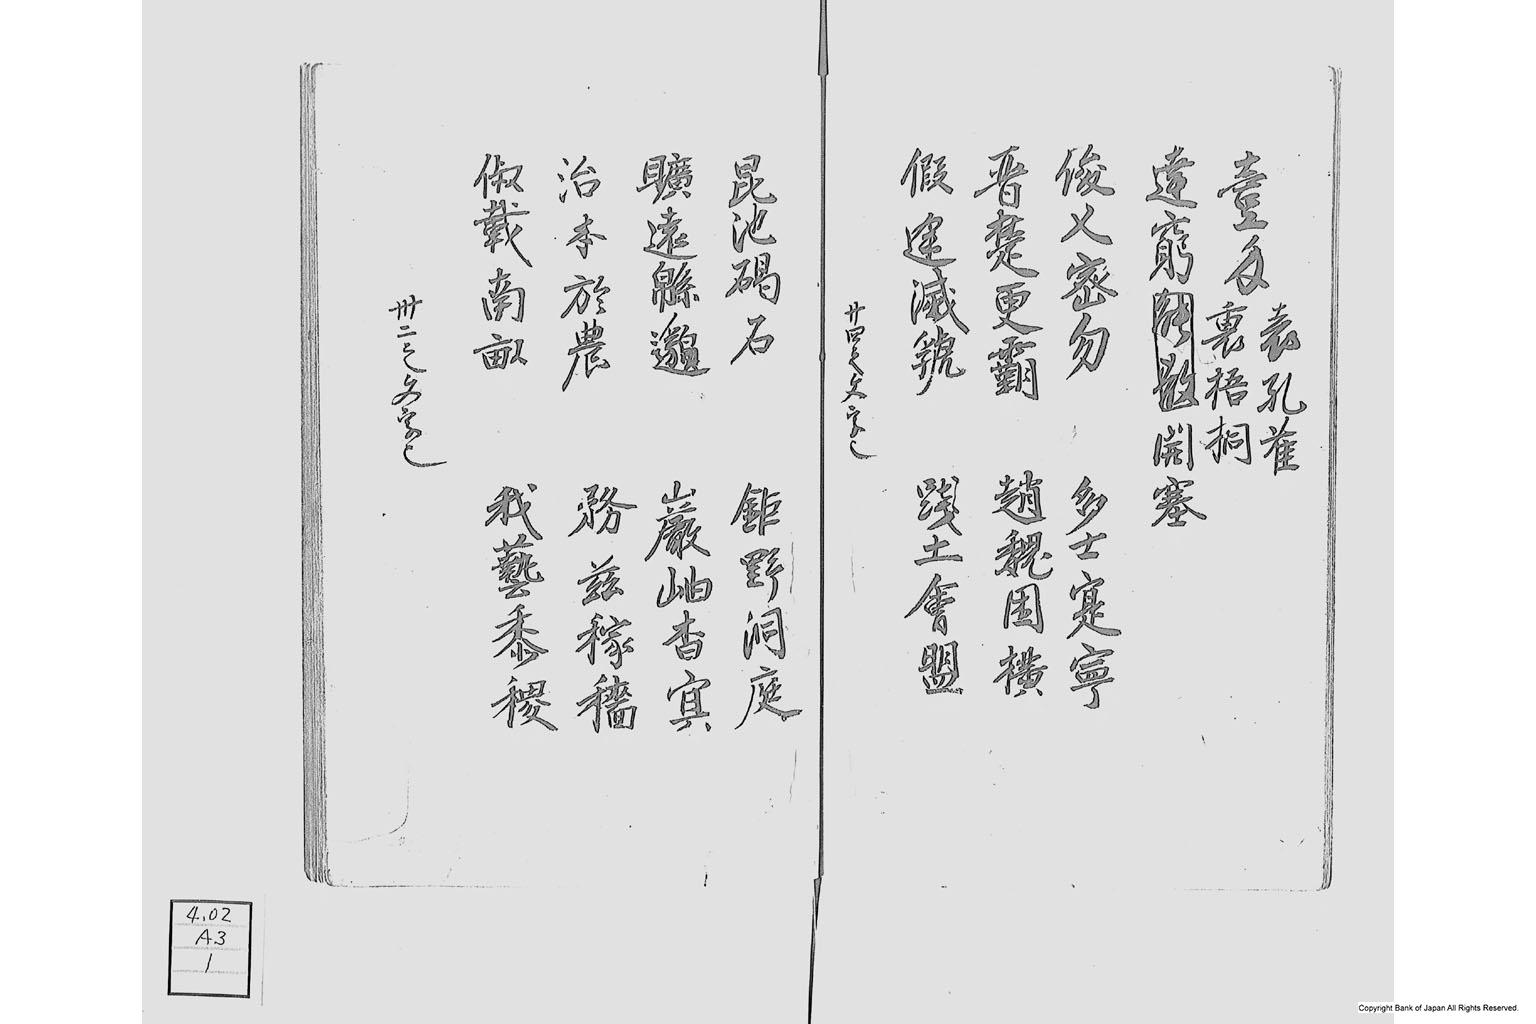 壹反
表孔雀
裏梧桐
達窮 開塞
俊乂密勿 多士寔寧
晋楚更霸 趙魏困橫
假途滅虢 踐土會盟
廿四文字
昆池碣石 鉅野洞庭
曠遠緜邈 巖岫杳冥
治本於農 務茲稼穡
俶載南畝 我藝黍稷
卅二文字
4.02
A3
1
Copyright Bank of Japan All Rights Reserved.